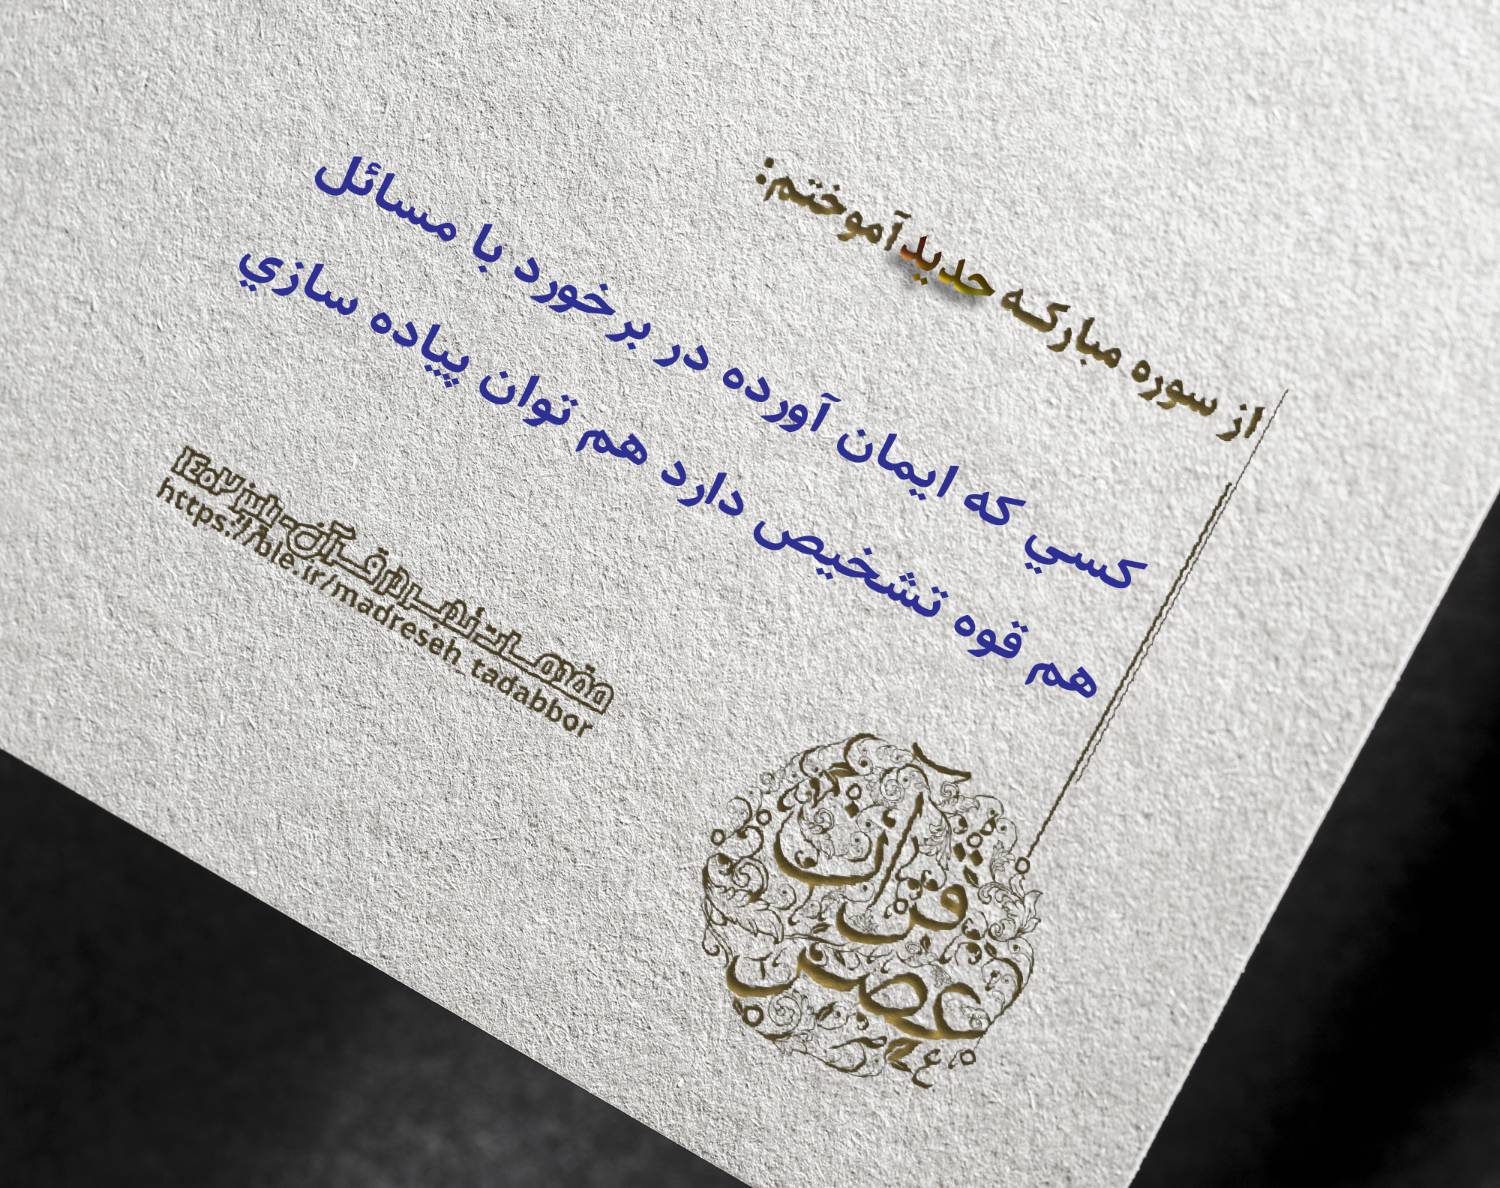 از سوره مبارکه حدید آموختم:
كسي كه ايمان آورده در برخورد با مسائل
هم قوه تشخيص دارد هم توان پياده سازي
مقدمات تدبر در قرآن-پاییز ۱۴۰۲
https://ble.ir/madreseh_tadabbor
قرآن
عصر